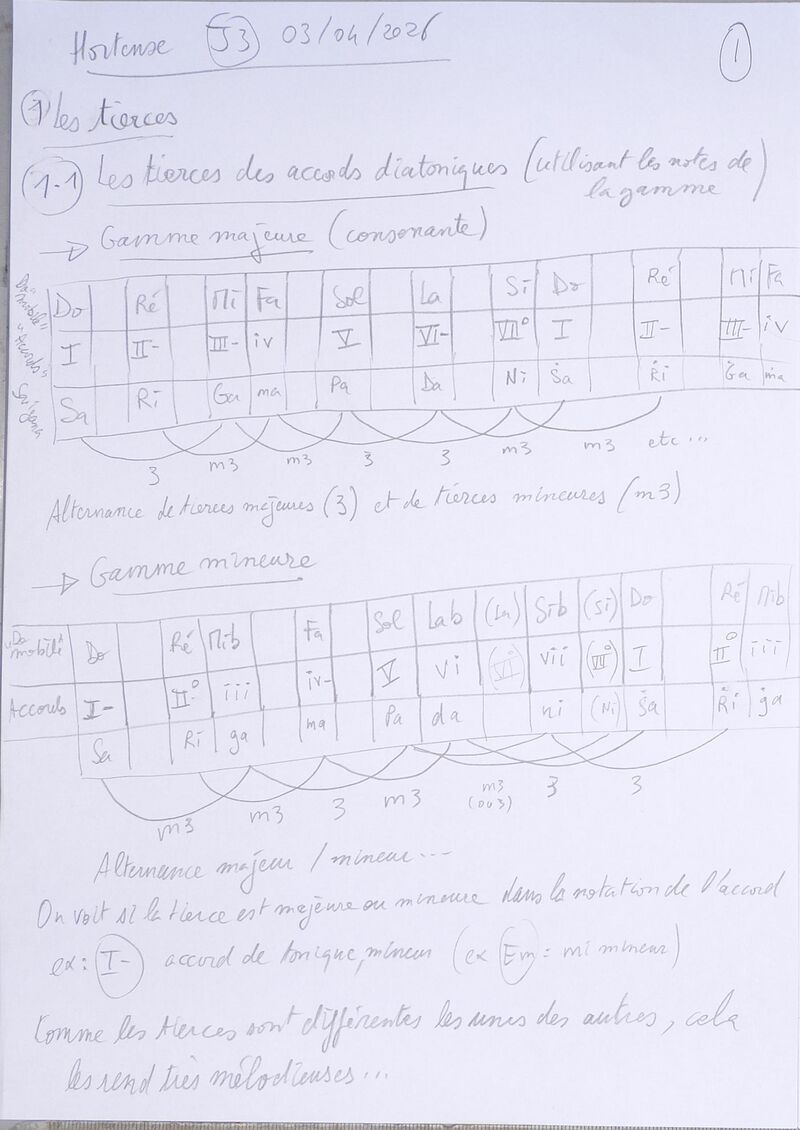 Hortense J3 03/04/2026
1
1 Les tierces
1-1 Les tierces des accords diatoniques (utilisant les notes de
la gamme)
→ Gamme majeure (consonante)
"Do mobile" Do Ré Mi Fa Sol La Si Do Ré Mi Fa
"Accords" I II- III- iv V VI- VII° I II- III- iv
Sargam Sa Ri Ga ma Pa Da Ni Ṡa Ṙi Ġa ṁa
3 m3 m3 3 3 m3 m3 etc...
Alternance de tierces majeures (3) et de tierces mineures (m3)
→ Gamme mineure
"Do mobile" Do Ré Mib Fa Sol Lab (La) Sib (Si) Do Ré Mib
Accords I- II° iii iv- V vi (VI) vii (VII°) I II° iii
Sa Ri ga ma Pa da ni (Ni) Ṡa Ṙi ġa
m3 m3 3 m3 m3 (ou 3) 3 3
Alternance majeur / mineur...
On voit si la tierce est majeure ou mineure dans la notation de l'accord
ex: I- accord de tonique, mineur (ex Em = mi mineur)
Comme les tierces sont différentes les unes des autres, cela
les rend très mélodieuses...